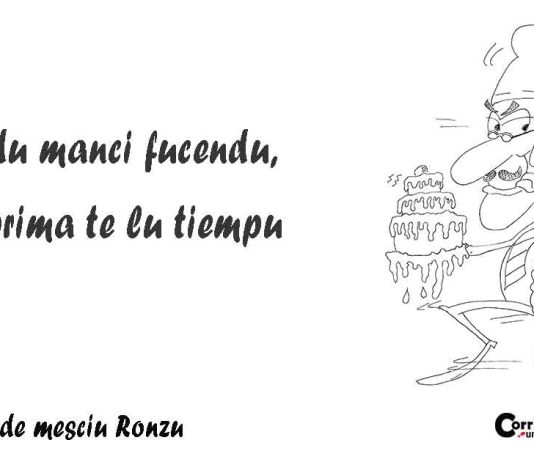 du manci fucendu,
prima te lu tiempu
de mesciu Ronzu
Corri